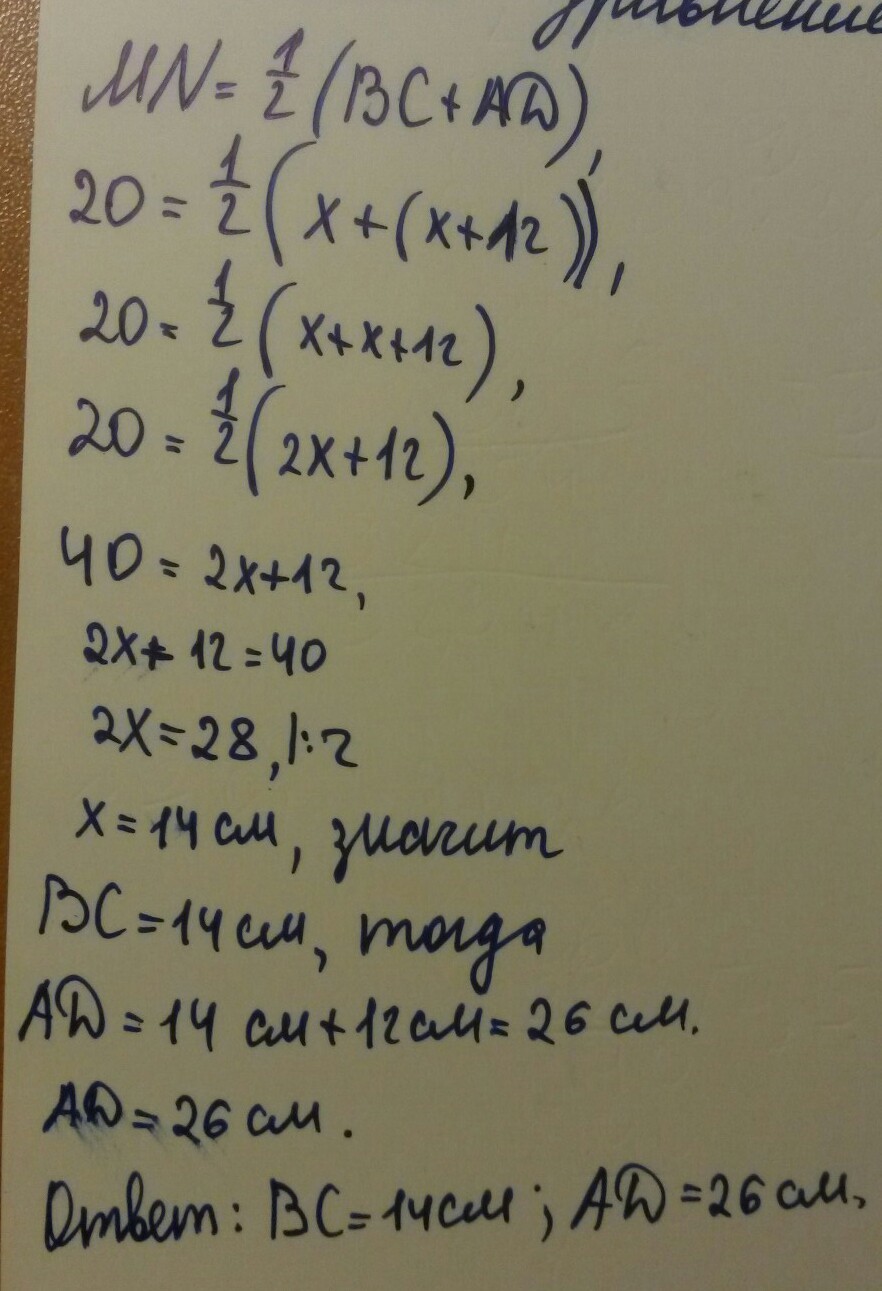 уравнение
MN = 1/2 (BC + AD),
20 = 1/2 (x + (x+12)),
20 = 1/2 (x+x+12),
20 = 1/2 (2x+12),
40 = 2x+12,
2x+12=40
2x=28, |:2
x=14 см, значит
BC=14 см, тогда
AD=14 см+12 см=26 см.
AD=26 см.
Ответ: BC=14 см; AD=26 см.